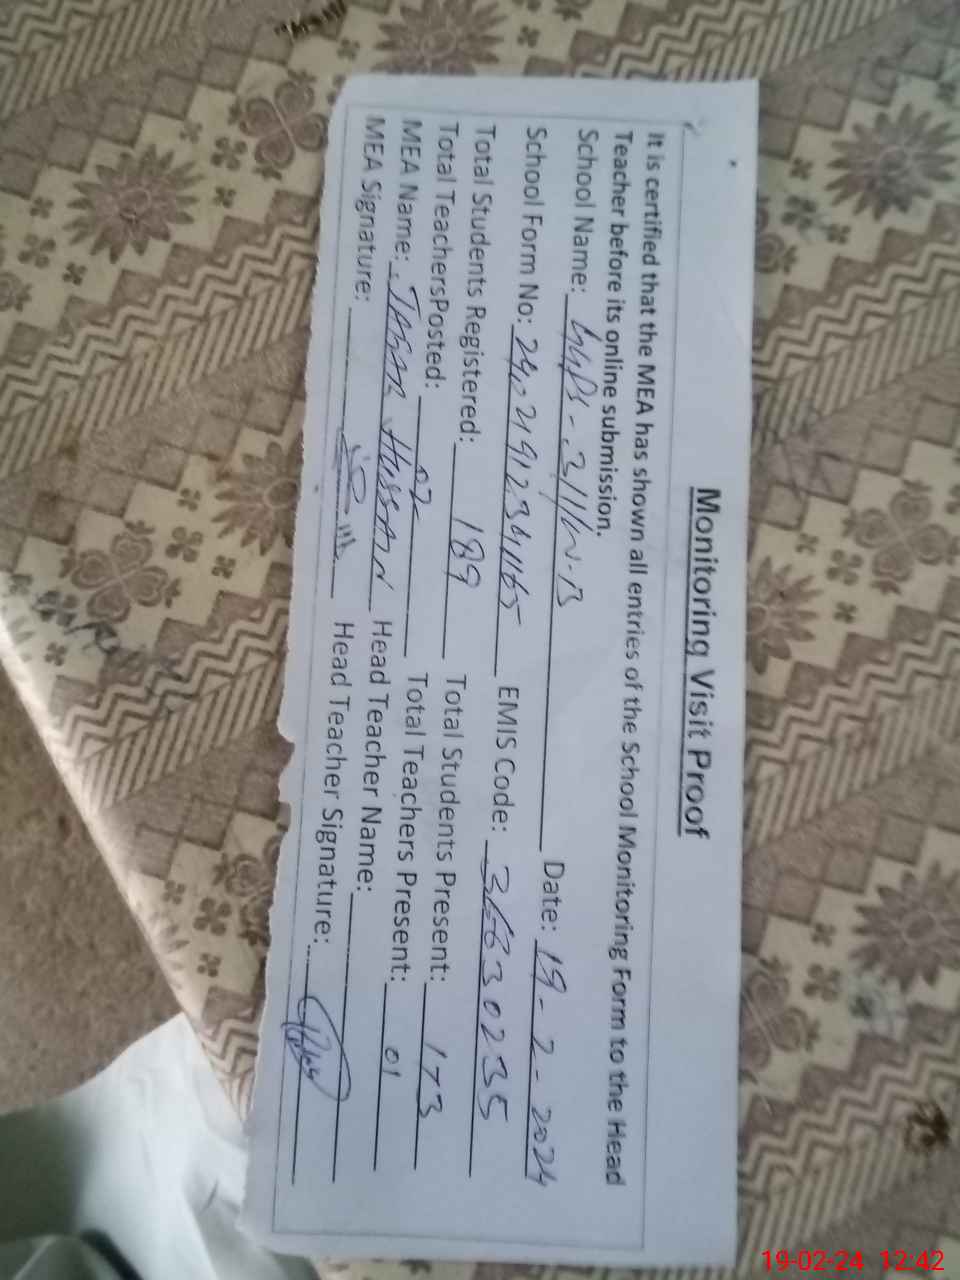 Monitoring Visit Proof
It is certified that the MEA has shown all entries of the School Monitoring Form to the Head
Teacher before its online submission.
School Name: Date: 19-2-2024
School Form No: EMIS Code: 36630235
Total Students Registered: 189 Total Students Present: 173
Total TeachersPosted: 02 Total Teachers Present: 01
MEA Name: Head Teacher Name:
MEA Signature: Head Teacher Signature:
19-02-24 12:42